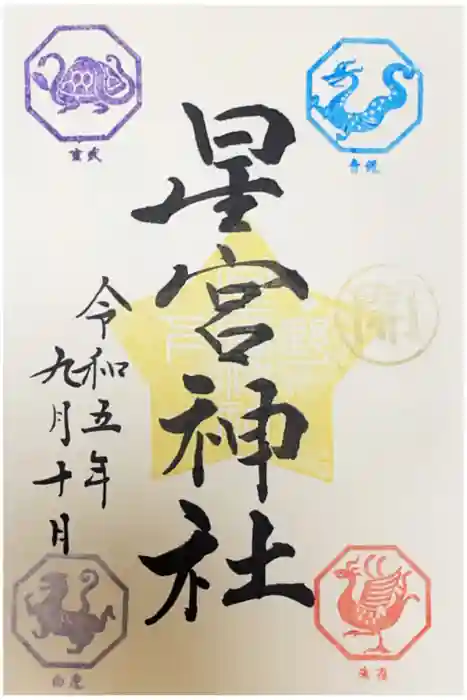 玄武
青龍
星宮神社
開
令和五年
九月十日
白虎
朱雀